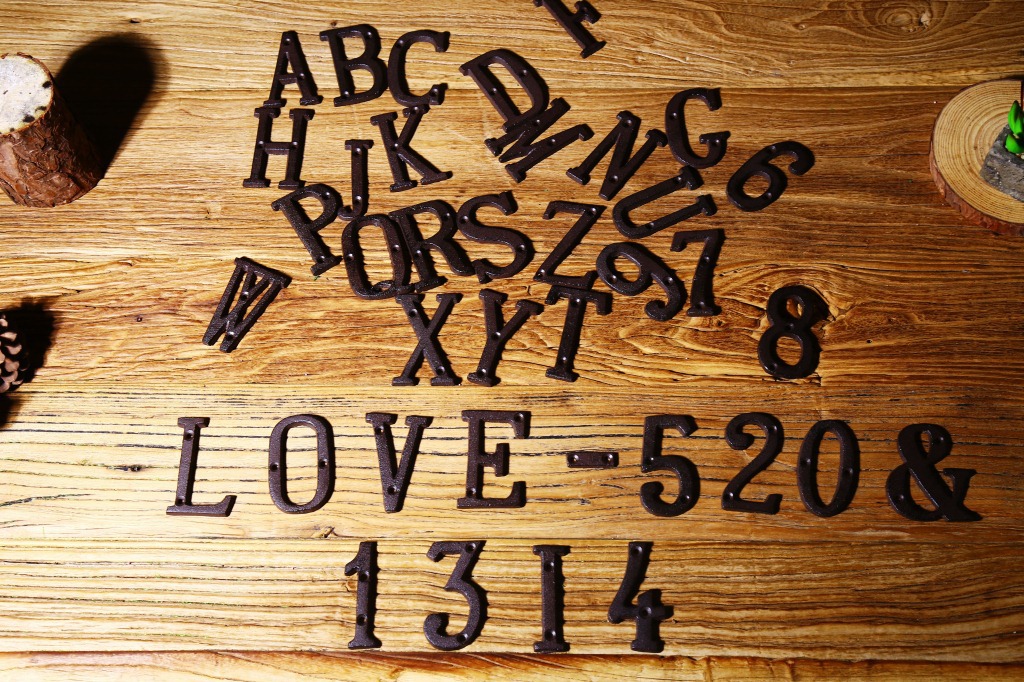 F
ABC D
HJK MNG
PQRSZU6
W 97
XYT 8
LOVE-520&
13I4